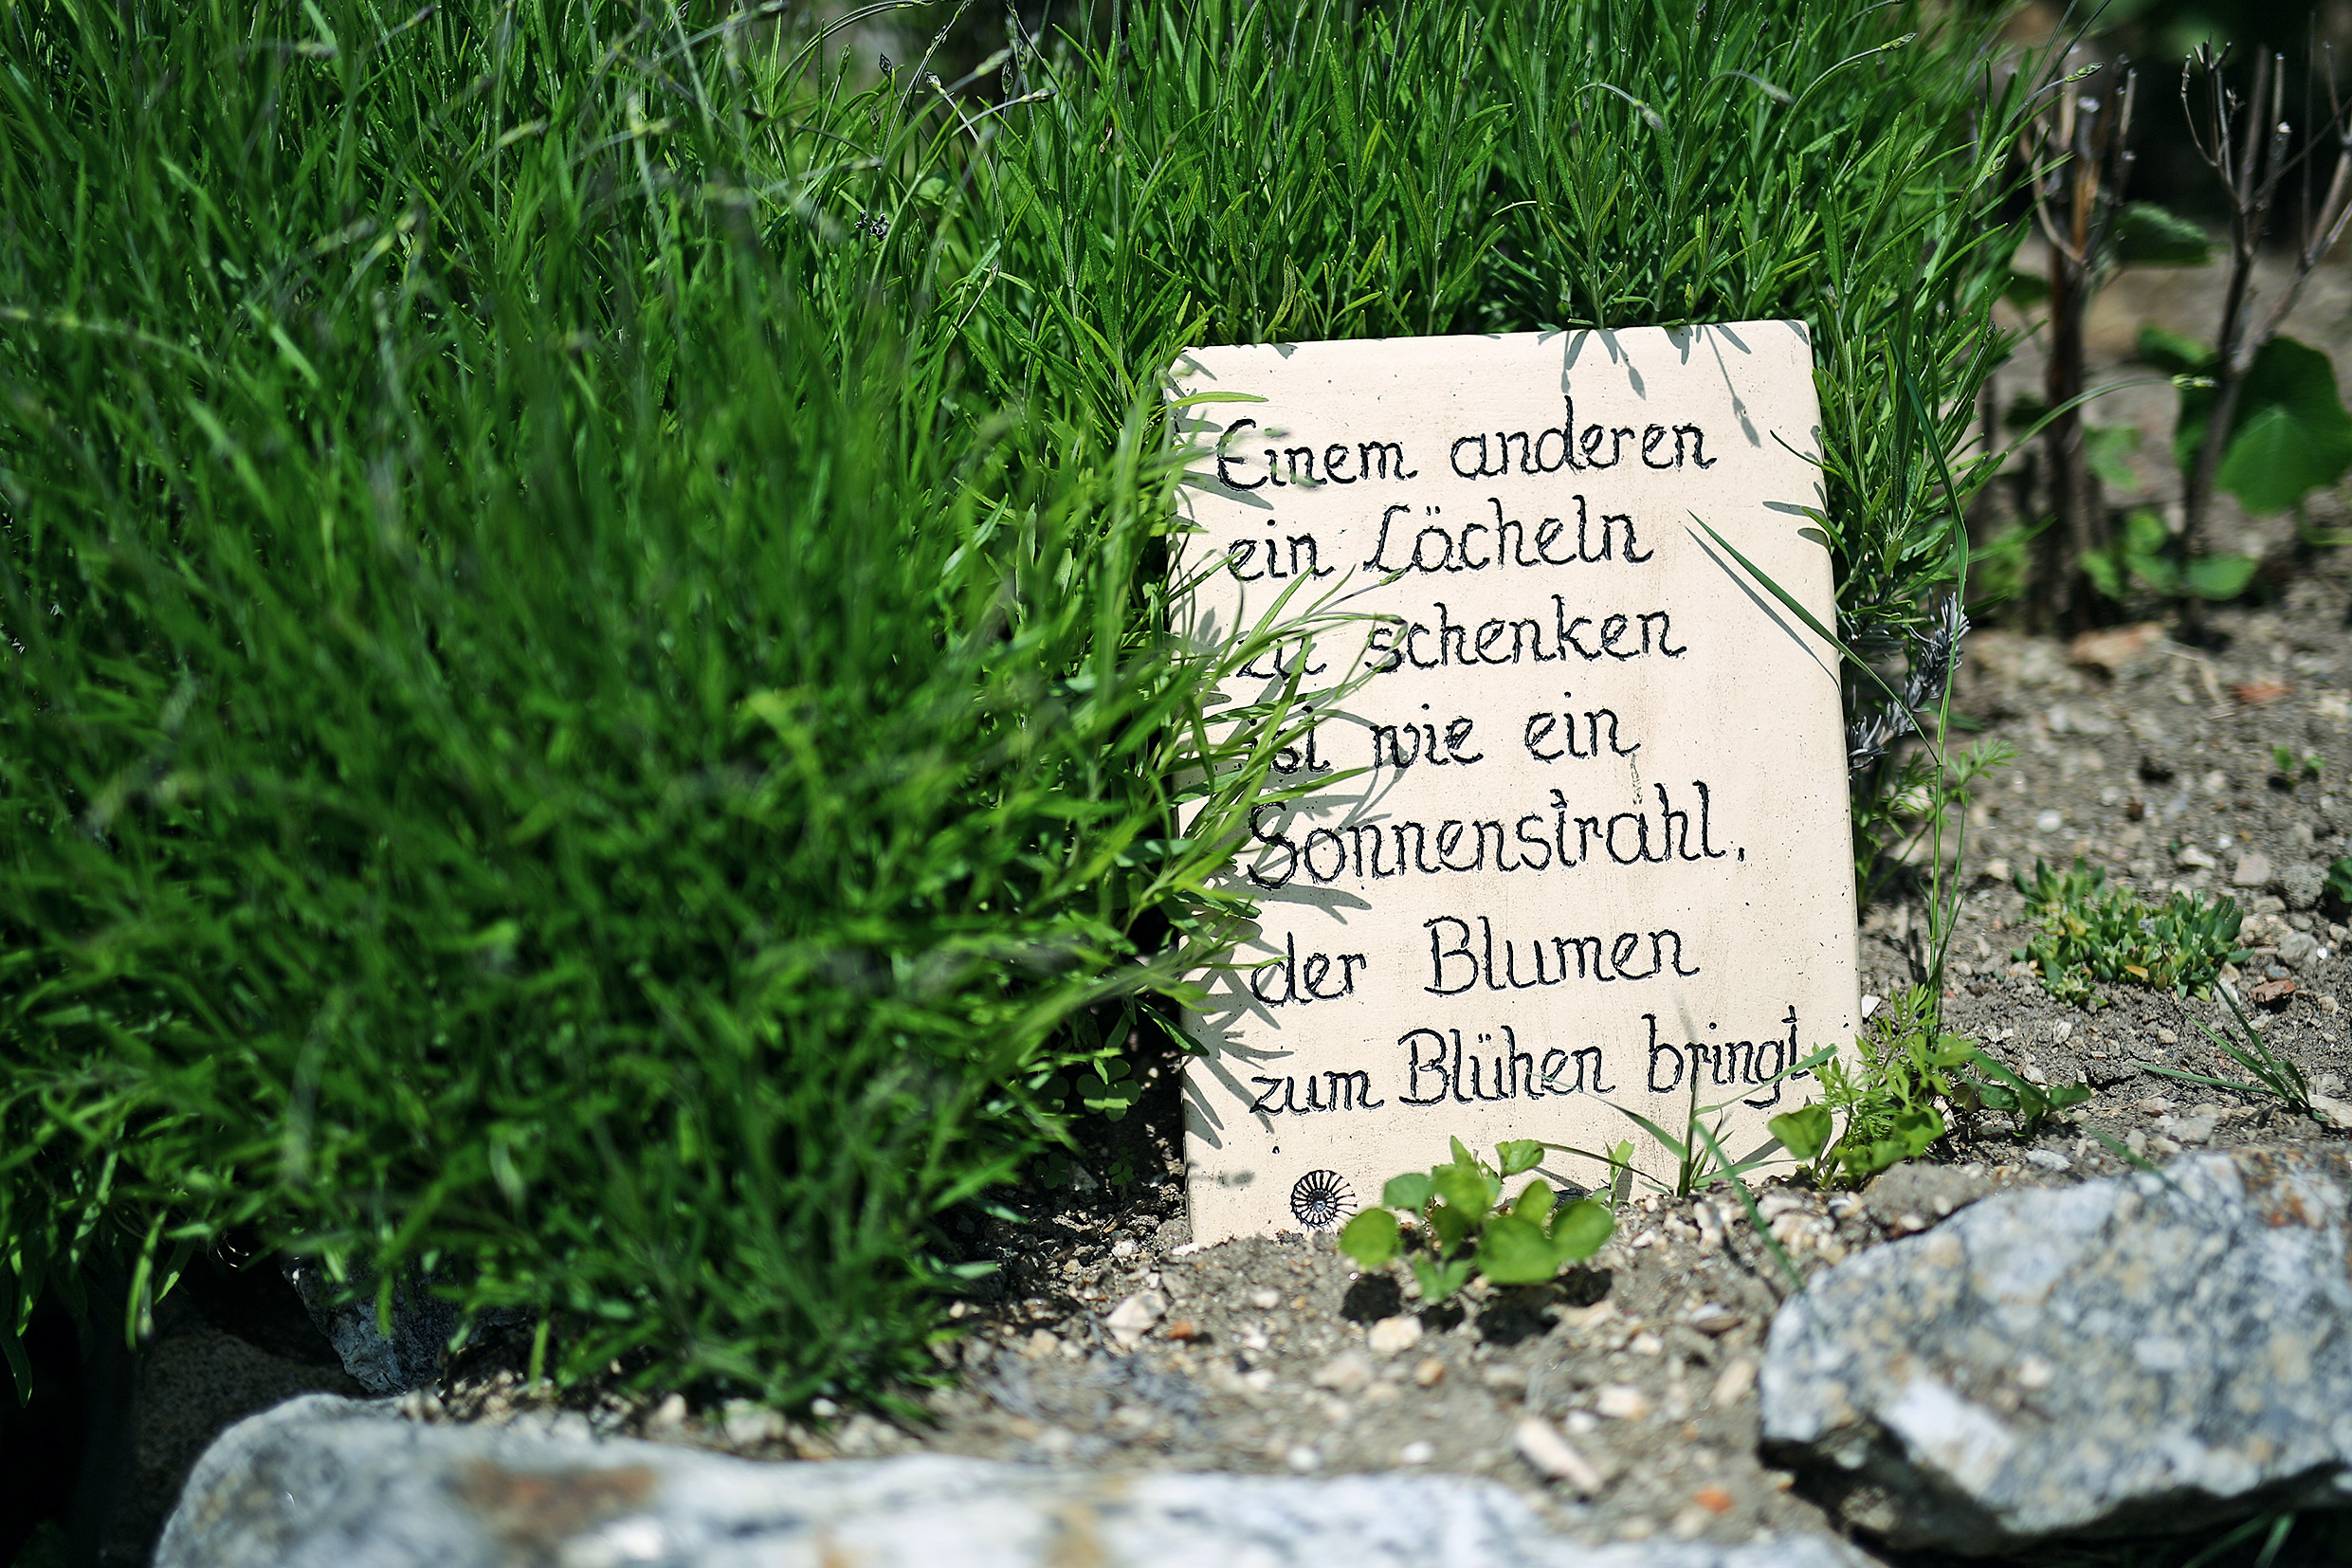 Einem anderen
ein Lächeln
zu schenken
ist wie ein
Sonnenstrahl,
der Blumen
zum Blühen bringt.